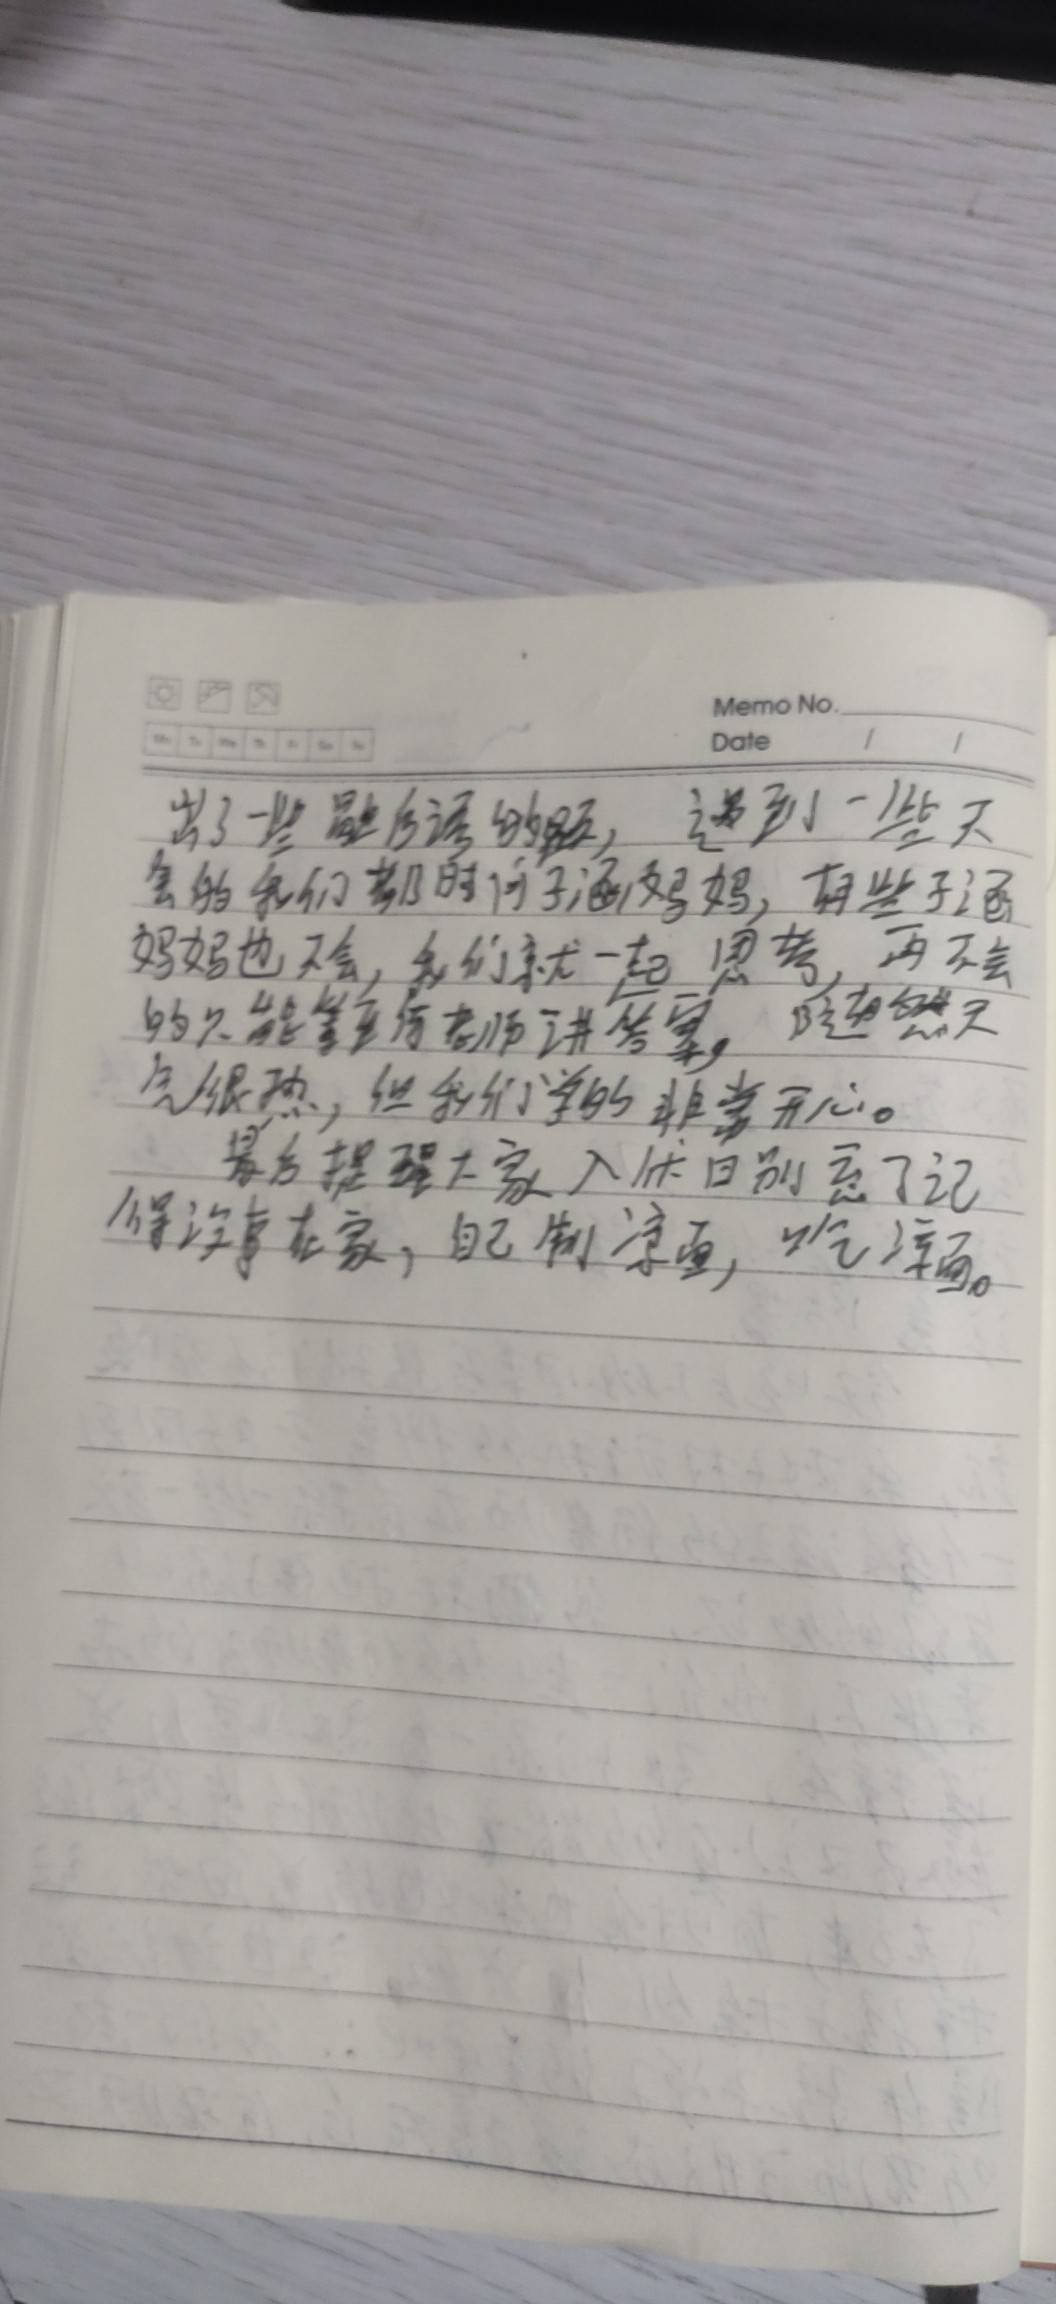 Memo No.
Date / /
出了一些歇后语的题，遇到一些不
会的我们都时问子涵妈妈，有些子涵
妈妈也不会，我们就一起思考，再不会
的只能等至何老师讲答案，随虽然天
气很热，但我们学的非常开心。
最后提醒大家入伏日别忘了记
得没事在家，自己制凉面，吃凉面。